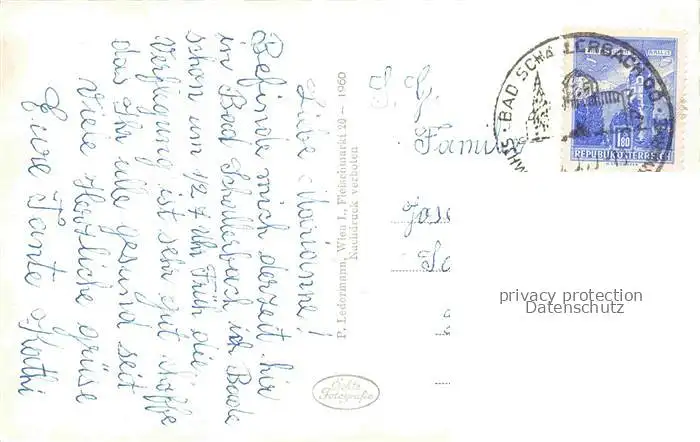 Liebe Marianne!
Befinde mich derzeit hir
in Bad Schallerbach ich Bade
schon um 1/2 7 Uhr Früh die
Verfügung ist sehr gut hoffe
das Ihr alle gesund seit
Viele Herzliche grüse
Eure Tante Kathi
P. Ledermann, Wien I., Fleischmarkt 20 – 1960
Nachdruck verboten
Echte
Fotografie
S. G.
Famil
Jose
BAD SCHALLERBACH
1.80
REPUBLIK ÖSTERREICH
privacy protection
Datenschutz